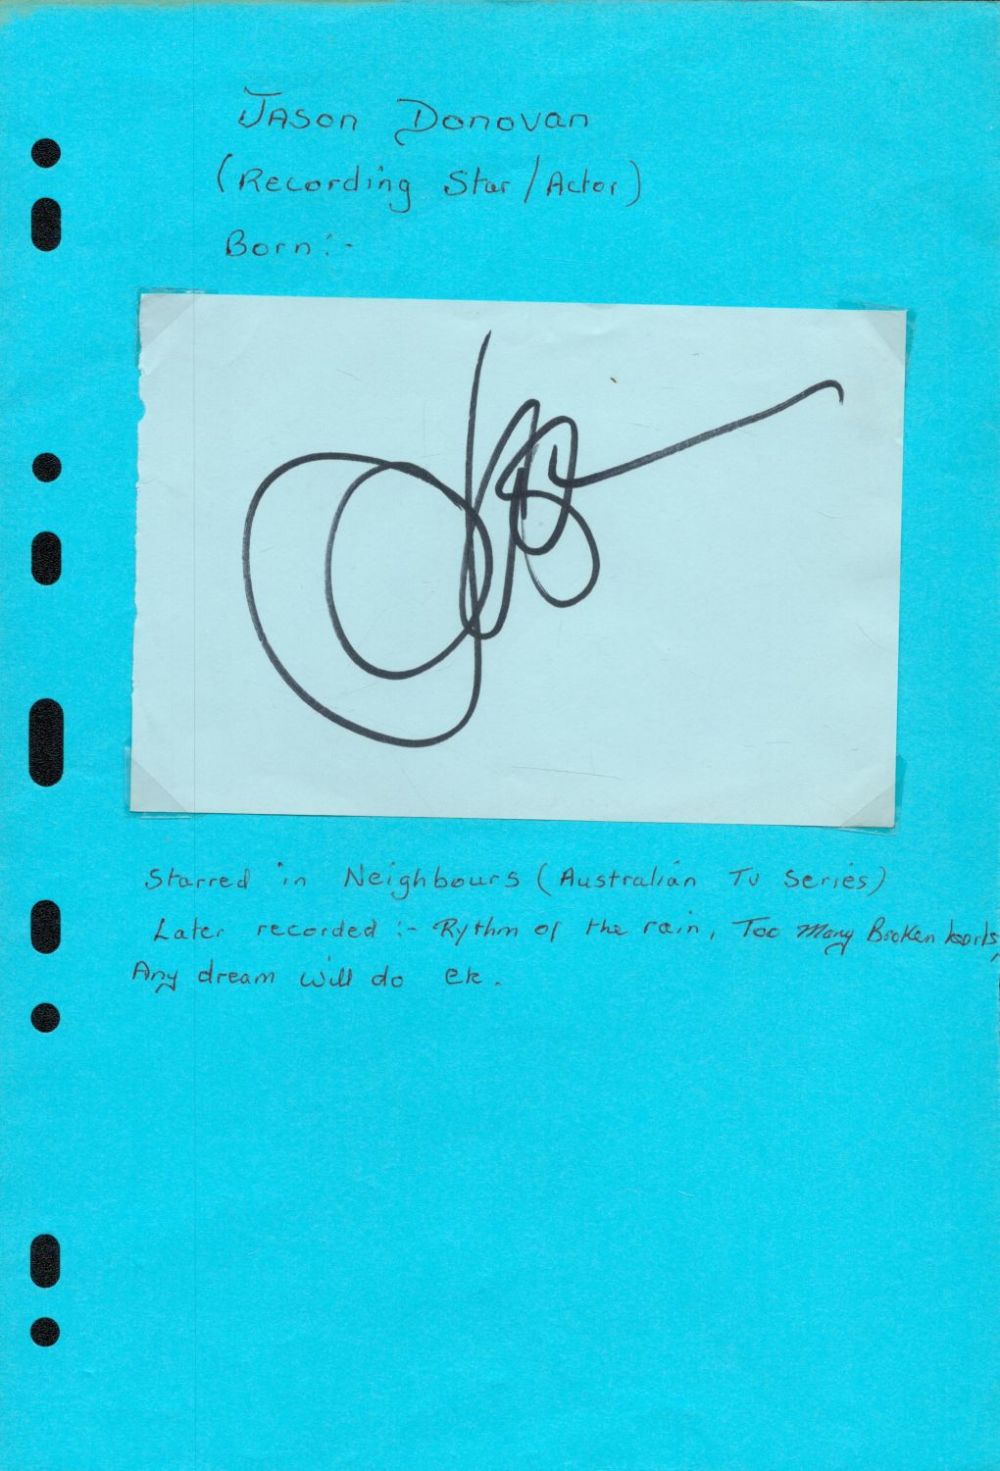 Jason Donovan
(Recording Star/Actor)
Born:-
Starred in Neighbours (Australian TV Series)
Later recorded :- Rythm of the rain, Too Many Broken hearts,
Any dream will do etc.